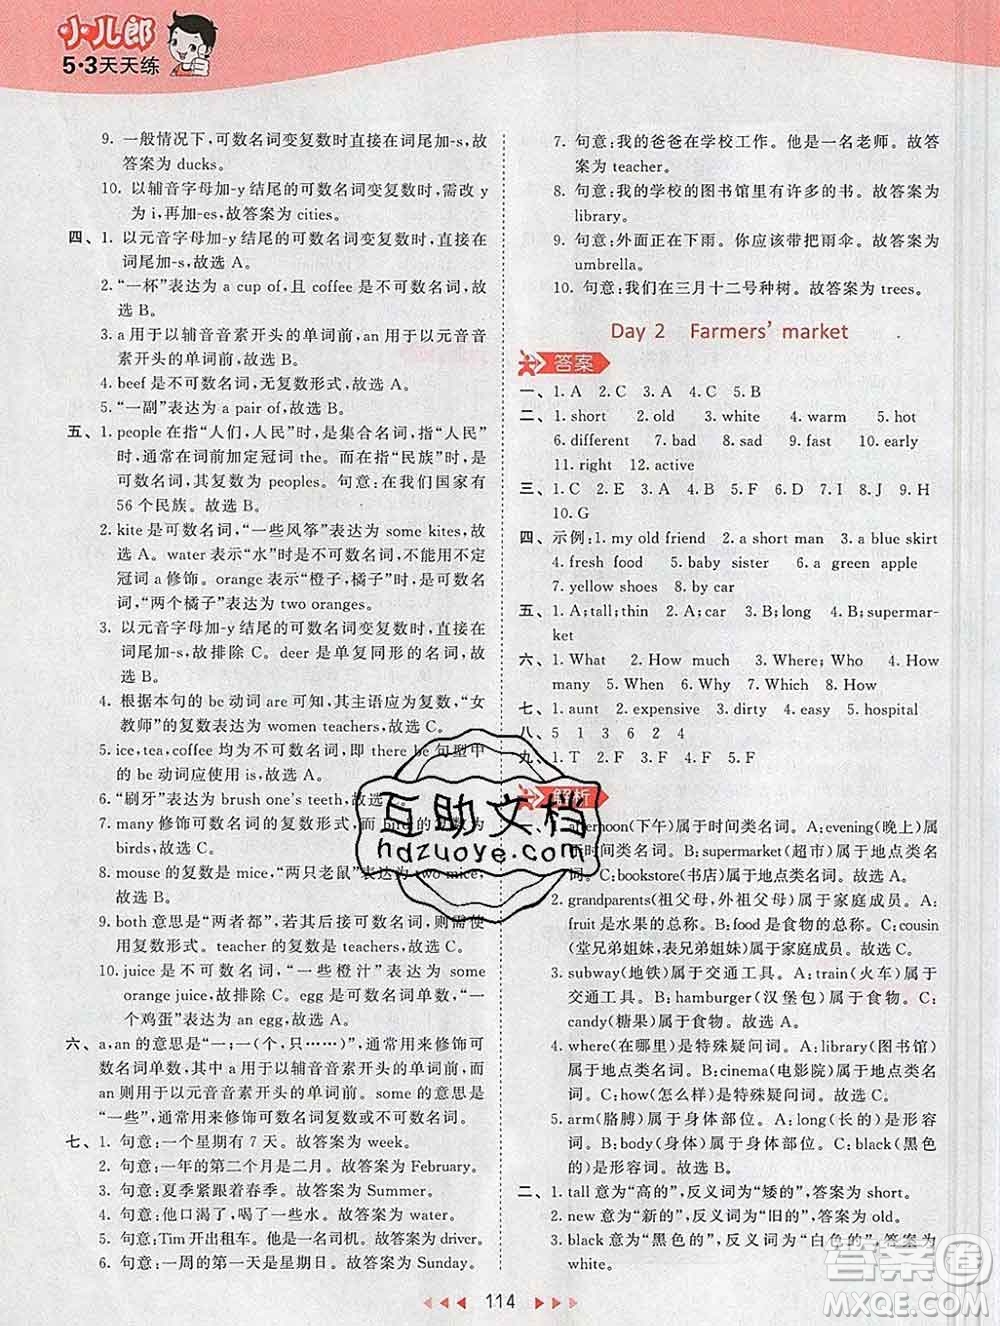 小儿郎
5·3天天练
9. 一般情况下,可数名词变复数时直接在词尾加-s,故
答案为 ducks。
10. 以辅音字母加-y 结尾的可数名词变复数时,需改 y
为 i,再加-es,故答案为 cities。
四、1. 以元音字母加-y 结尾的可数名词变复数时,直接在
词尾加-s,故选 A。
2. “一杯”表达为 a cup of,且 coffee 是不可数名词,故
选 B。
3. a 用于以辅音音素开头的单词前,an 用于以元音音
素开头的单词前,故选 B。
4. beef 是不可数名词,无复数形式,故选 A。
5. “一副”表达为 a pair of,故选 B。
五、1. people 在指“人们,人民”时,是集合名词,指“人民”
时,通常在词前加定冠词 the。而在指“民族”时,是
可数名词,其复数为 peoples。句意:在我们国家有
56 个民族。故选 B。
2. kite 是可数名词,“一些风筝”表达为 some kites,故
选 A。water 表示“水”时是不可数名词,不能用不定
冠词 a 修饰。orange 表示“橙子,橘子”时,是可数名
词,“两个橘子”表达为 two oranges。
3. 以元音字母加-y 结尾的可数名词变复数时,直接在
词尾加-s,故排除 C。deer 是单复同形的名词,故
选 A。
4. 根据本句的 be 动词 are 可知,其主语应为复数,“女
教师”的复数表达为 women teachers,故选 C。
5. ice,tea,coffee 均为不可数名词,即 there be 句型中
的 be 动词应使用 is,故选 A。
6. “刷牙”表达为 brush one's teeth,故选
7. many 修饰可数名词的复数形式,而 bird 的复数为
birds,故选 B。
8. mouse 的复数是 mice,“两只老鼠”表达为 two mice,
故选 C。
9. both 意思是“两者都”,若其后接可数名词,则需使
用复数形式。teacher 的复数是 teachers,故选 C。
10. juice 是不可数名词,“一些橙汁”表达为 some
orange juice,故排除 C。egg 是可数名词单数,“一
个鸡蛋”表达为 an egg,故选 A。
六、a,an 的意思是“一;一(个,只……)”,通常用来修饰可
数名词单数,其中 a 用于以辅音音素开头的单词前,而
an 则用于以元音音素开头的单词前。some 的意思是
“一些”,通常用来修饰可数名词复数或不可数名词。
七、1. 句意:一个星期有 7 天。故答案为 week。
2. 句意:一年的第二个月是二月。故答案为 February。
3. 句意:夏季紧跟着春季。故答案为 Summer。
4. 句意:他口渴了,喝了一些水。故答案为 water。
5. 句意:Tim 开出租车。他是一名司机。故答案为 driver。
6. 句意:一周的第一天是星期日。故答案为 Sunday。
7. 句意:我的爸爸在学校工作。他是一名老师。故答
案为 teacher。
8. 句意:我的学校的图书馆里有许多的书。故答案为
library。
9. 句意:外面正在下雨。你应该带把雨伞。故答案为
umbrella。
10. 句意:我们在三月十二号种树。故答案为 trees。
Day 2 Farmers' market
答案
一、1. A 2. C 3. A 4. C 5. B
二、1. short 2. old 3. white 4. warm 5. hot
6. different 7. bad 8. sad 9. fast 10. early
11. right 12. active
三、1. C 2. E 3. A 4. B 5. D 6. F 7. I 8. J 9. H
10. G
四、示例:1. my old friend 2. a short man 3. a blue skirt
4. fresh food 5. baby sister 6. a green apple
7. yellow shoes 8. red jacket
五、1. A;tall;thin 2. A;car 3. B;long 4. B;supermar-
ket
六、1. What 2. How much 3. Where;Who 4. How
many 5. When 6. Why 7. Which 8. How
七、1. aunt 2. expensive 3. dirty 4. easy 5. hospital
八、5 1 3 6 2 4
九、1. T 2. F 3. F 4. F 5. F
解析
一、1. afternoon(下午)属于时间类名词。A:evening(晚上)属
于时间类名词。B:supermarket(超市)属于地点类名
词。C:bookstore(书店)属于地点类名词。故选 A。
2. grandparents(祖父母,外祖父母)属于家庭成员。A:
fruit 是水果的总称。B:food 是食物的总称。C:cousin
(堂兄弟姐妹,表兄弟姐妹)属于家庭成员。故选 C。
3. subway(地铁)属于交通工具。A:train(火车)属于
交通工具。B:hamburger(汉堡包)属于食物。C:
candy(糖果)属于食物。故选 A。
4. where(在哪里)是特殊疑问词。A:library(图书馆)
属于地点类名词。B:cinema(电影院)属于地点类名
词。C:how(怎么样)是特殊疑问词。故选 C。
5. arm(胳膊)属于身体部位。A:long(长的)是形容
词。B:body(身体)属于身体部位。C:black(黑色
的)是形容词。故选 B。
二、1. tall 意为“高的”,反义词为“矮的”,答案为 short。
2. new 意为“新的”,反义词为“旧的”,答案为 old。
3. black 意为“黑色的”,反义词为“白色的”,答案为
white。
互助文档
hdzuoye.com
答案圈
MXQE.COM
114